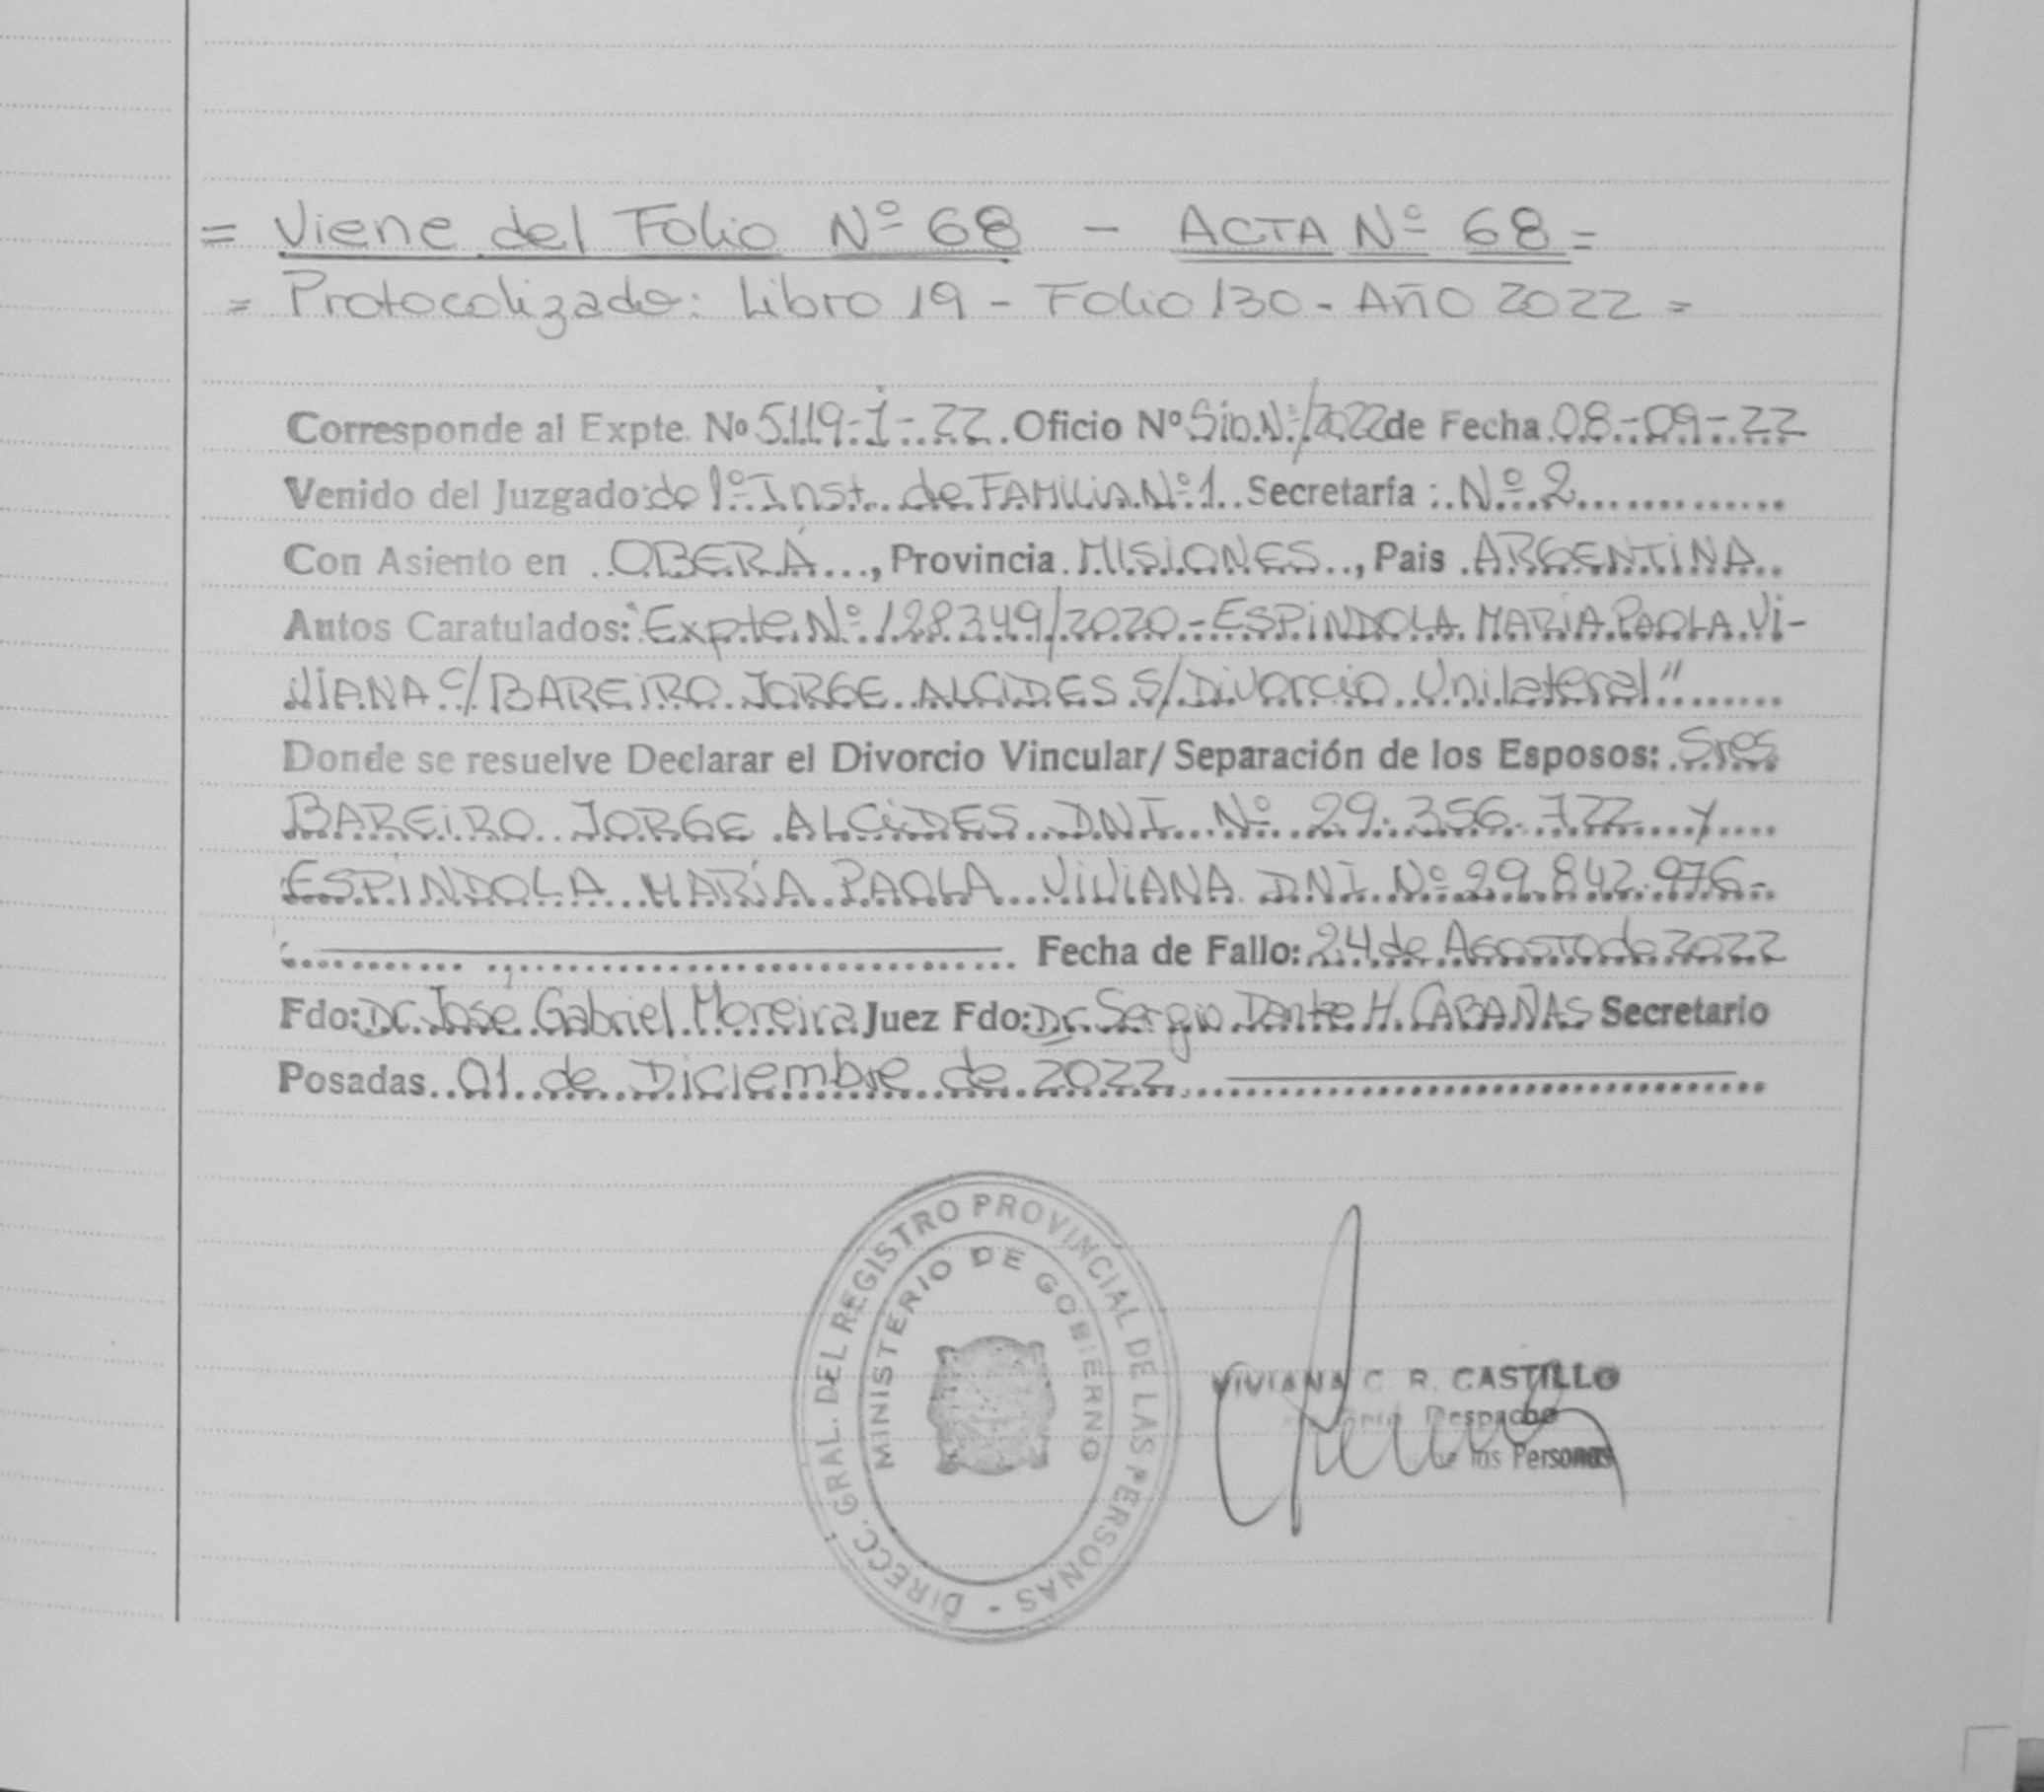 = Viene del Folio Nº 68 - ACTA Nº 68 =
= Protocolizado: Libro 19 - Folio 130 - AÑO 2022 =
Corresponde al Expte. Nº 5119-1-22 Oficio Nº Sin Nº/2022 de Fecha 08-09-22
Venido del Juzgado de 1º Inst. de FAMILIA Nº 1 Secretaría: Nº 2
Con Asiento en OBERÁ, Provincia MISIONES, Pais ARGENTINA
Autos Caratulados: "Expte. Nº 128349/2020 - ESPINDOLA MARIA PAOLA VI-
VIANA c/ BAREIRO JORGE ALCIDES s/ Divorcio Unilateral"
Donde se resuelve Declarar el Divorcio Vincular/Separación de los Esposos: Sres
BAREIRO JORGE ALCIDES DNI Nº 29.356.722 y
ESPÍNDOLA MARÍA PAOLA VIVIANA DNI Nº 29.842.976-
Fecha de Fallo: 24 de Agosto de 2022
Fdo: Dr. José Gabriel Moreira Juez Fdo: Dr. Sergio Dante H. CABAÑAS Secretario
Posadas 01 de Diciembre de 2022
DIRECC. GRAL. DEL REGISTRO PROVINCIAL DE LAS PERSONAS -
MINISTERIO DE GOBIERNO
VIVIANA C. R. CASTILLO
Despacho
de las Personas